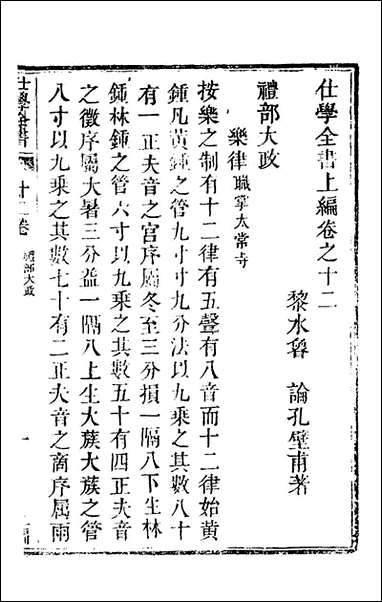 仕學全書上編卷之十二
黎水魯 論孔壁甫著
禮部大政
樂律職掌太常寺
按樂之制有十二律有五聲有八音而十二律始黃
鍾凡黃鍾之管九寸寸九分法以九乘之其數八十
有一正夫音之宮序屬冬至三分損一隔八下生林
鍾林鍾之管六寸以九乘之其數五十有四正夫音
之徵序屬大暑三分益一隔八上生大蔟大蔟之管
八寸以九乘之其數七十有二正夫音之商序屬雨
仕學全書
十二卷
禮部大政
一